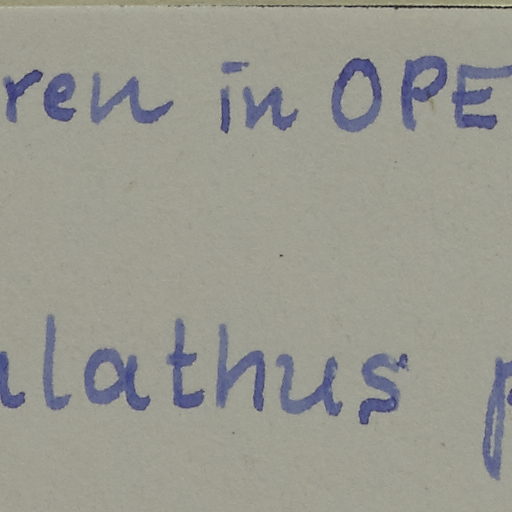 ren in OPE
lathus p